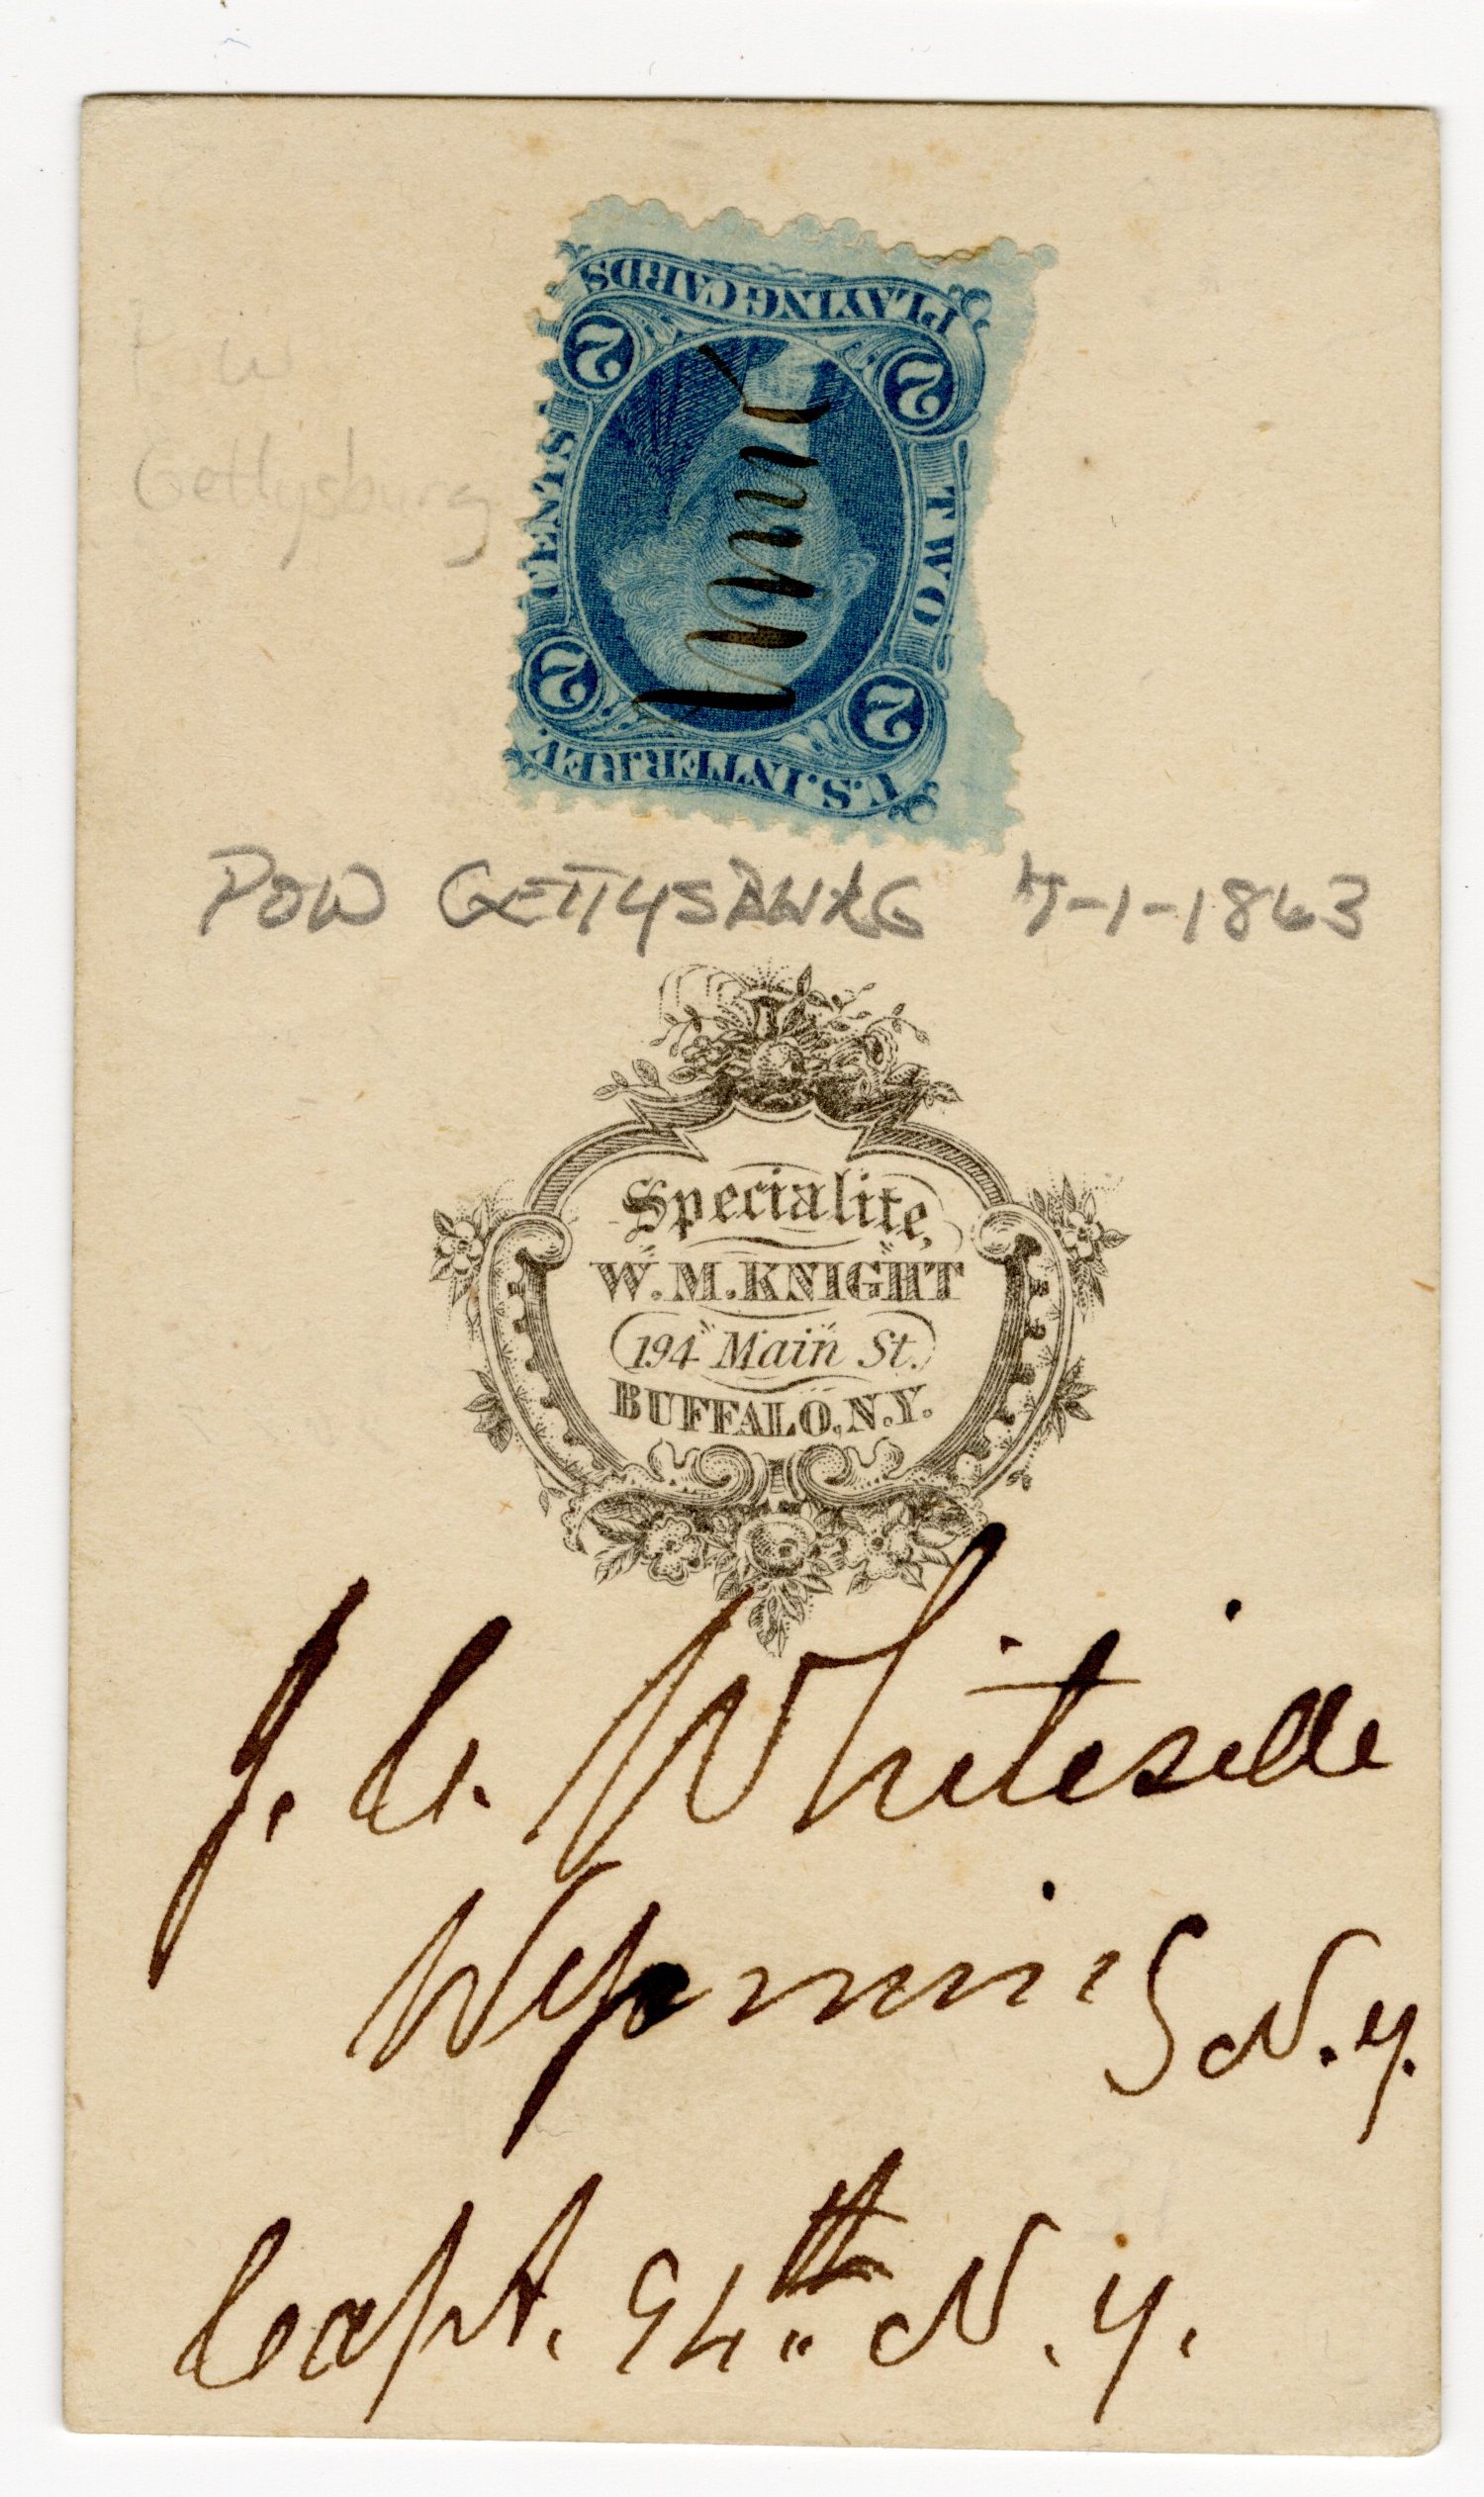 PLAYING CARDS
2 2
CENTS TWO
2 2
U.S. INTER. REV.
POW
Gettysburg
POW GETTYSBURG 7-1-1863
Specialite,
W. M. KNIGHT
194 Main St.
BUFFALO, N.Y.
J. C. Whiteside
Wyoming N.Y.
Capt. 94th N.Y.